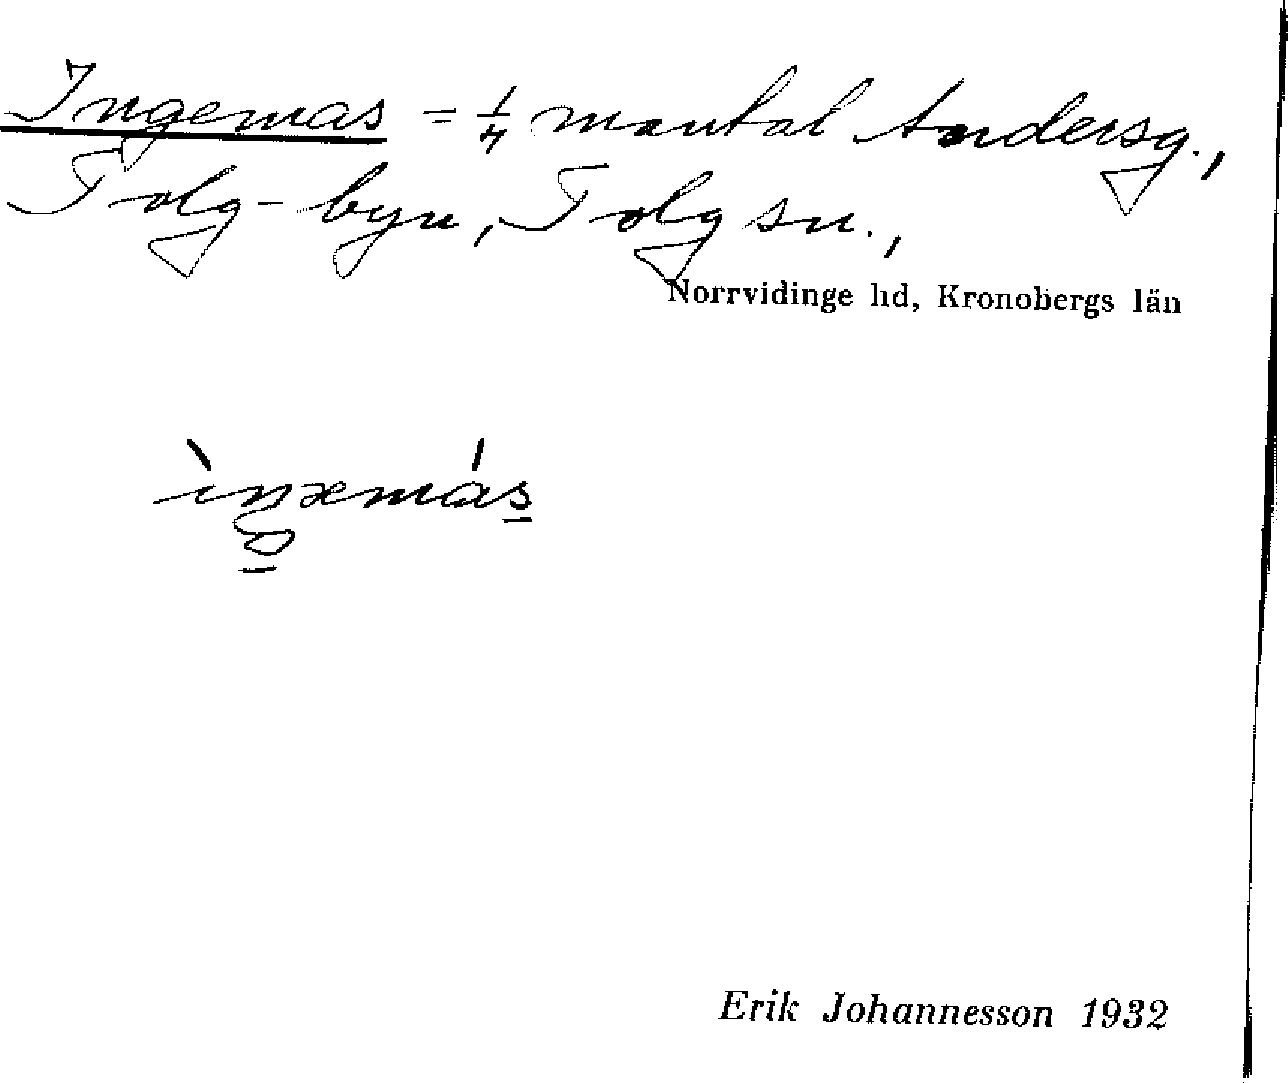 Ingemas = 1/4 mantal Andersg.,
Tolg-byn, Tolg sn.,
Norrvidinge hd, Kronobergs län
Erik Johannesson 1932